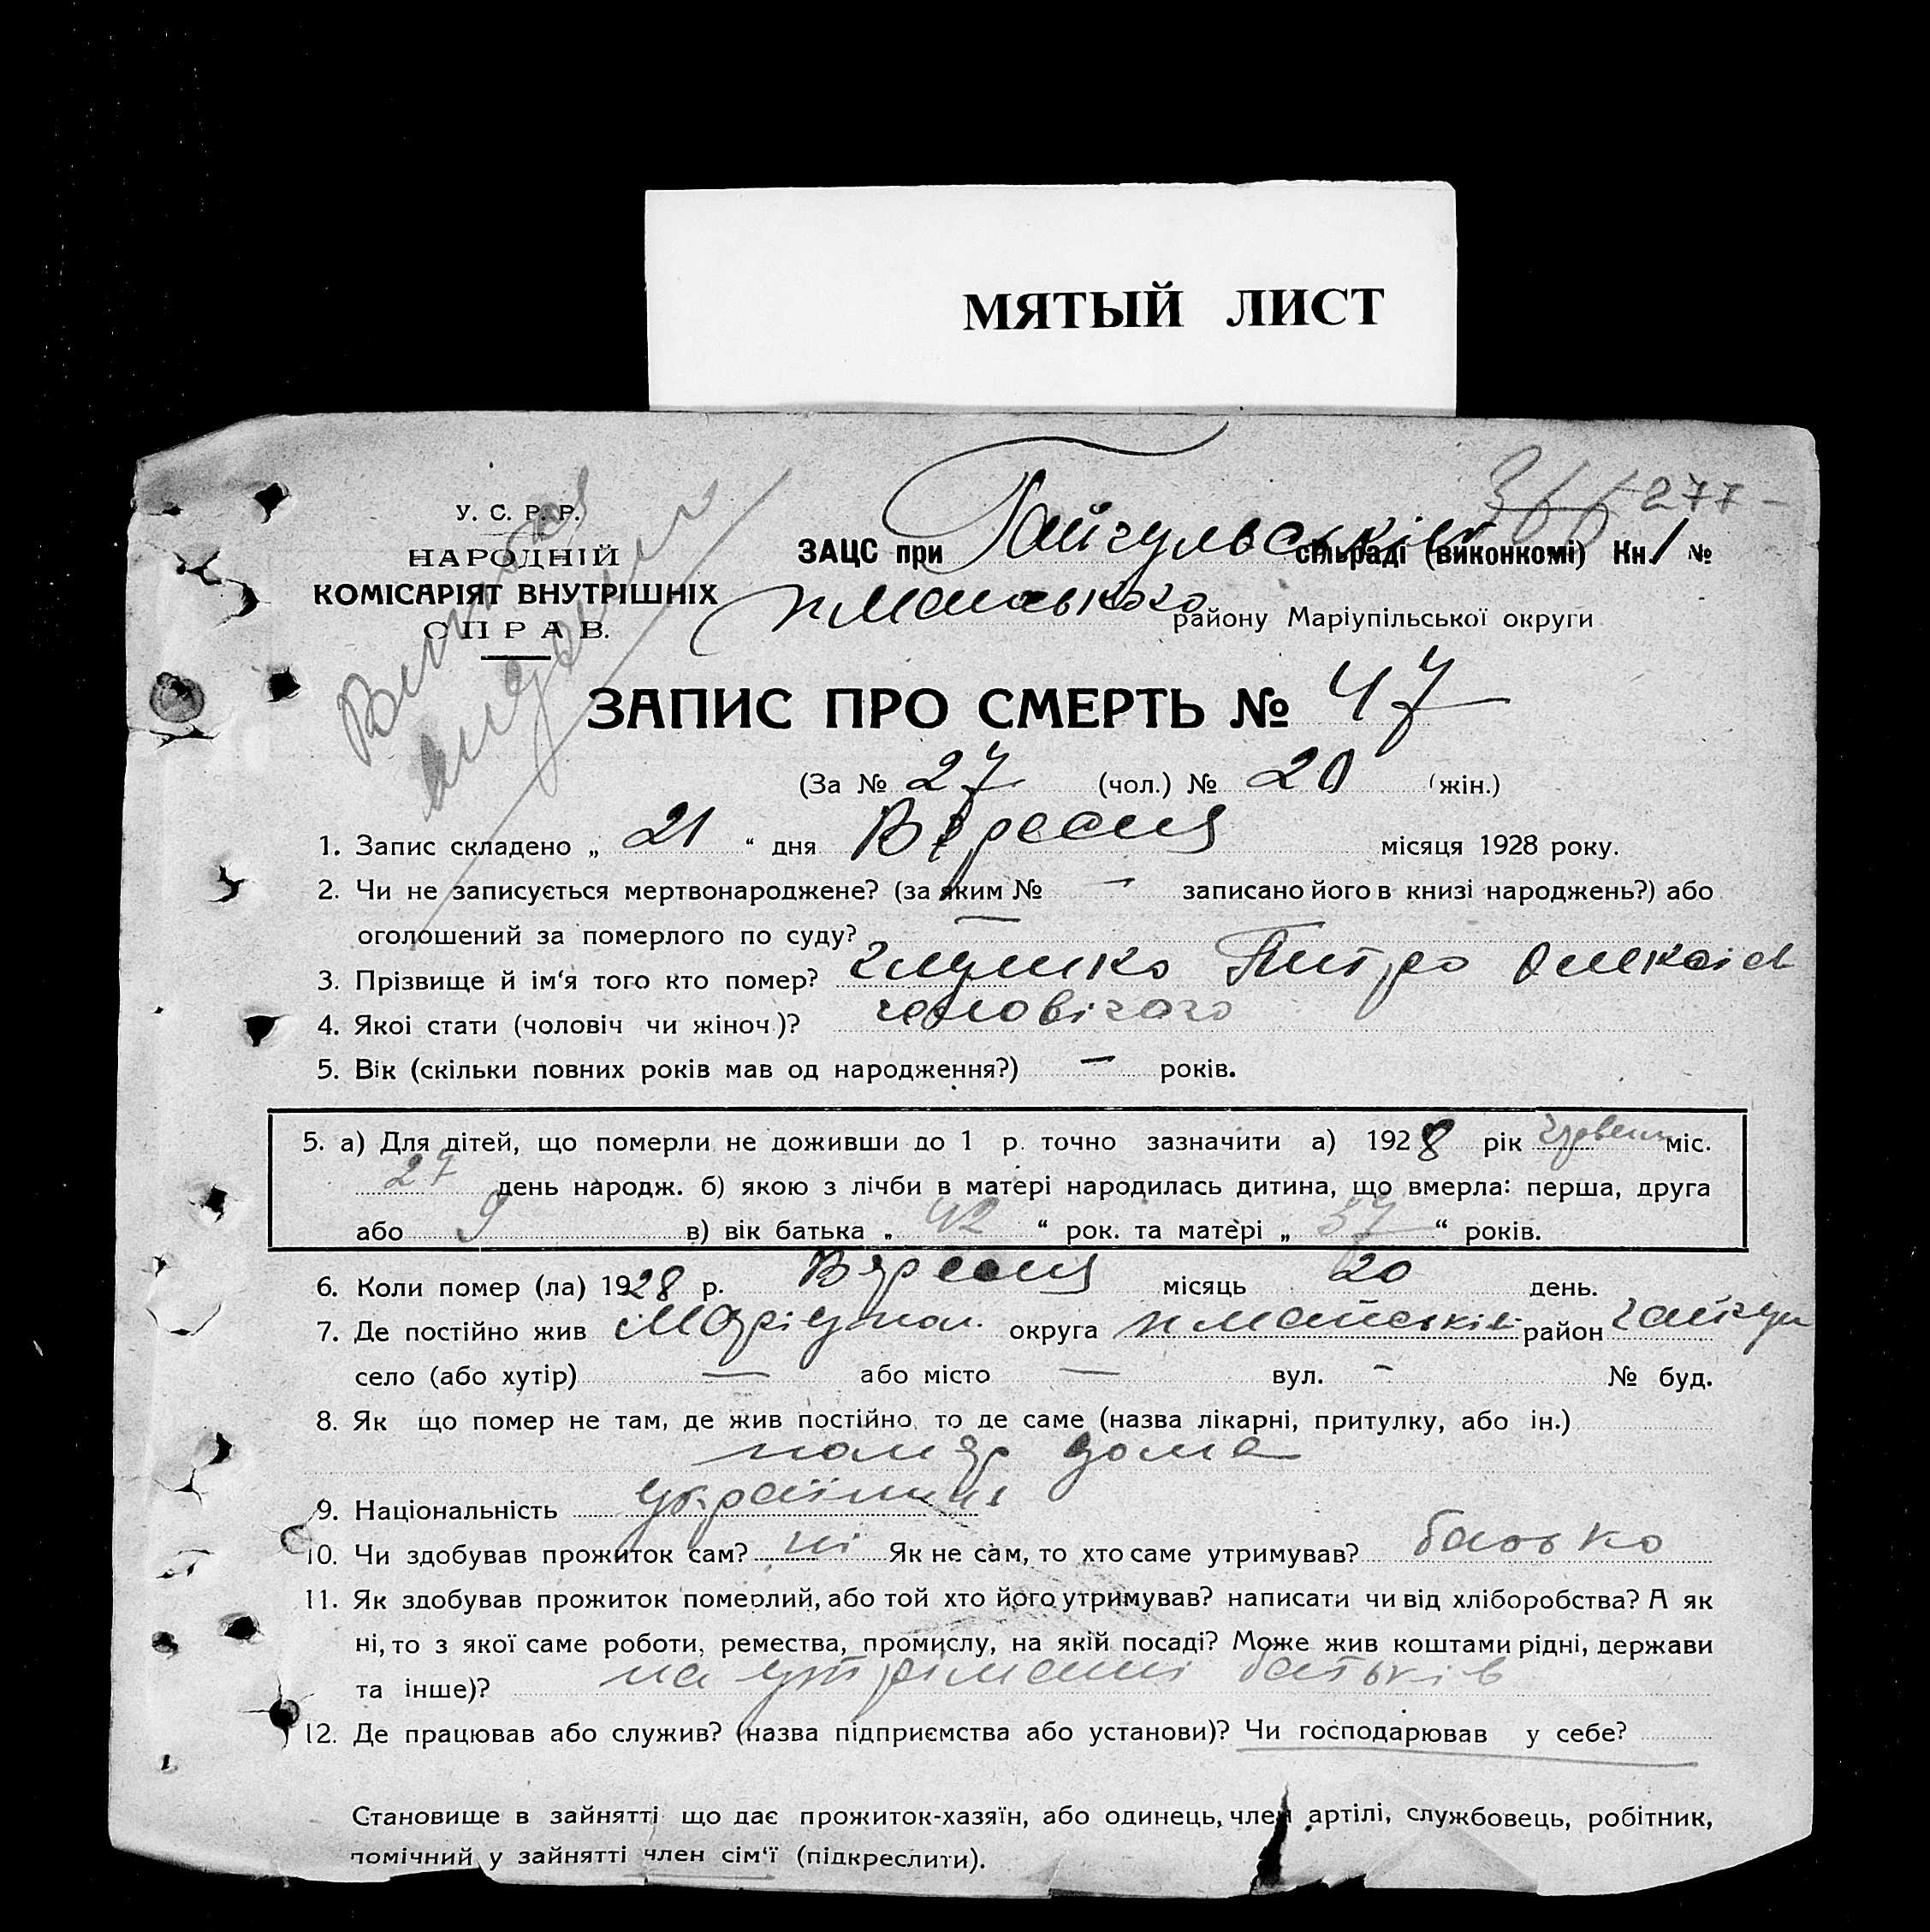 МЯТЫЙ ЛИСТ
277
У. С. Р. Р.
НАРОДНІЙ
КОМІСАРІЯТ ВНУТРІШНІХ
СПРАВ.
ЗАЦС при Гайчульській сільраді (виконкомі) Кн. 1 №
району Маріупільської округи
ЗАПИС ПРО СМЕРТЬ № 47
(За № 27 (чол.) № 20 (жін.)
1. Запис складено „ 21 “ дня Вересня місяця 1928 року.
2. Чи не записується мертвонароджене? (за яким № — записано його в книзі народжень?) або
оголошений за померлого по суду? —
3. Прізвище й ім'я того кто помер? Глушко Питро
4. Якої стати (чоловіч чи жіноч.)? чоловічого
5. Вік (скільки повних років мав од народження?) — років.
5. а) Для дітей, що померли не доживши до 1 р. точно зазначити а) 1928 рік Червень міс.
27 день народж. б) якою з лічби в матері народилась дитина, що вмерла: перша, друга
або 9 в) вік батька „ 42 “ рок. та матері „ 37 “ років.
6. Коли помер (ла) 1928 р. Вересня місяць 20 день.
7. Де постійно жив Маріупол. округа район Гайчул
село (або хутір) — або місто — вул. - № буд.
8. Як що помер не там, де жив постійно то де саме (назва лікарні, притулку, або ін.)
помер дома
9. Національність українця
10. Чи здобував прожиток сам? ні Як не сам, то хто саме утримував? батько
11. Як здобував прожиток померлий, або той хто його утримував? написати чи від хліборобства? А як
ні, то з якої саме роботи, ремества, промислу, на якій посаді? Може жив коштами рідні, держави
та інше)? на утріманні батьків
12. Де працював або служив? (назва підприємства або установи)? Чи господарював у себе?
Становище в зайнятті що дає прожиток-хазяїн, або одинець, член артілі, службовець, робітник,
помічний у зайнятті член сім'ї (підкреслити).